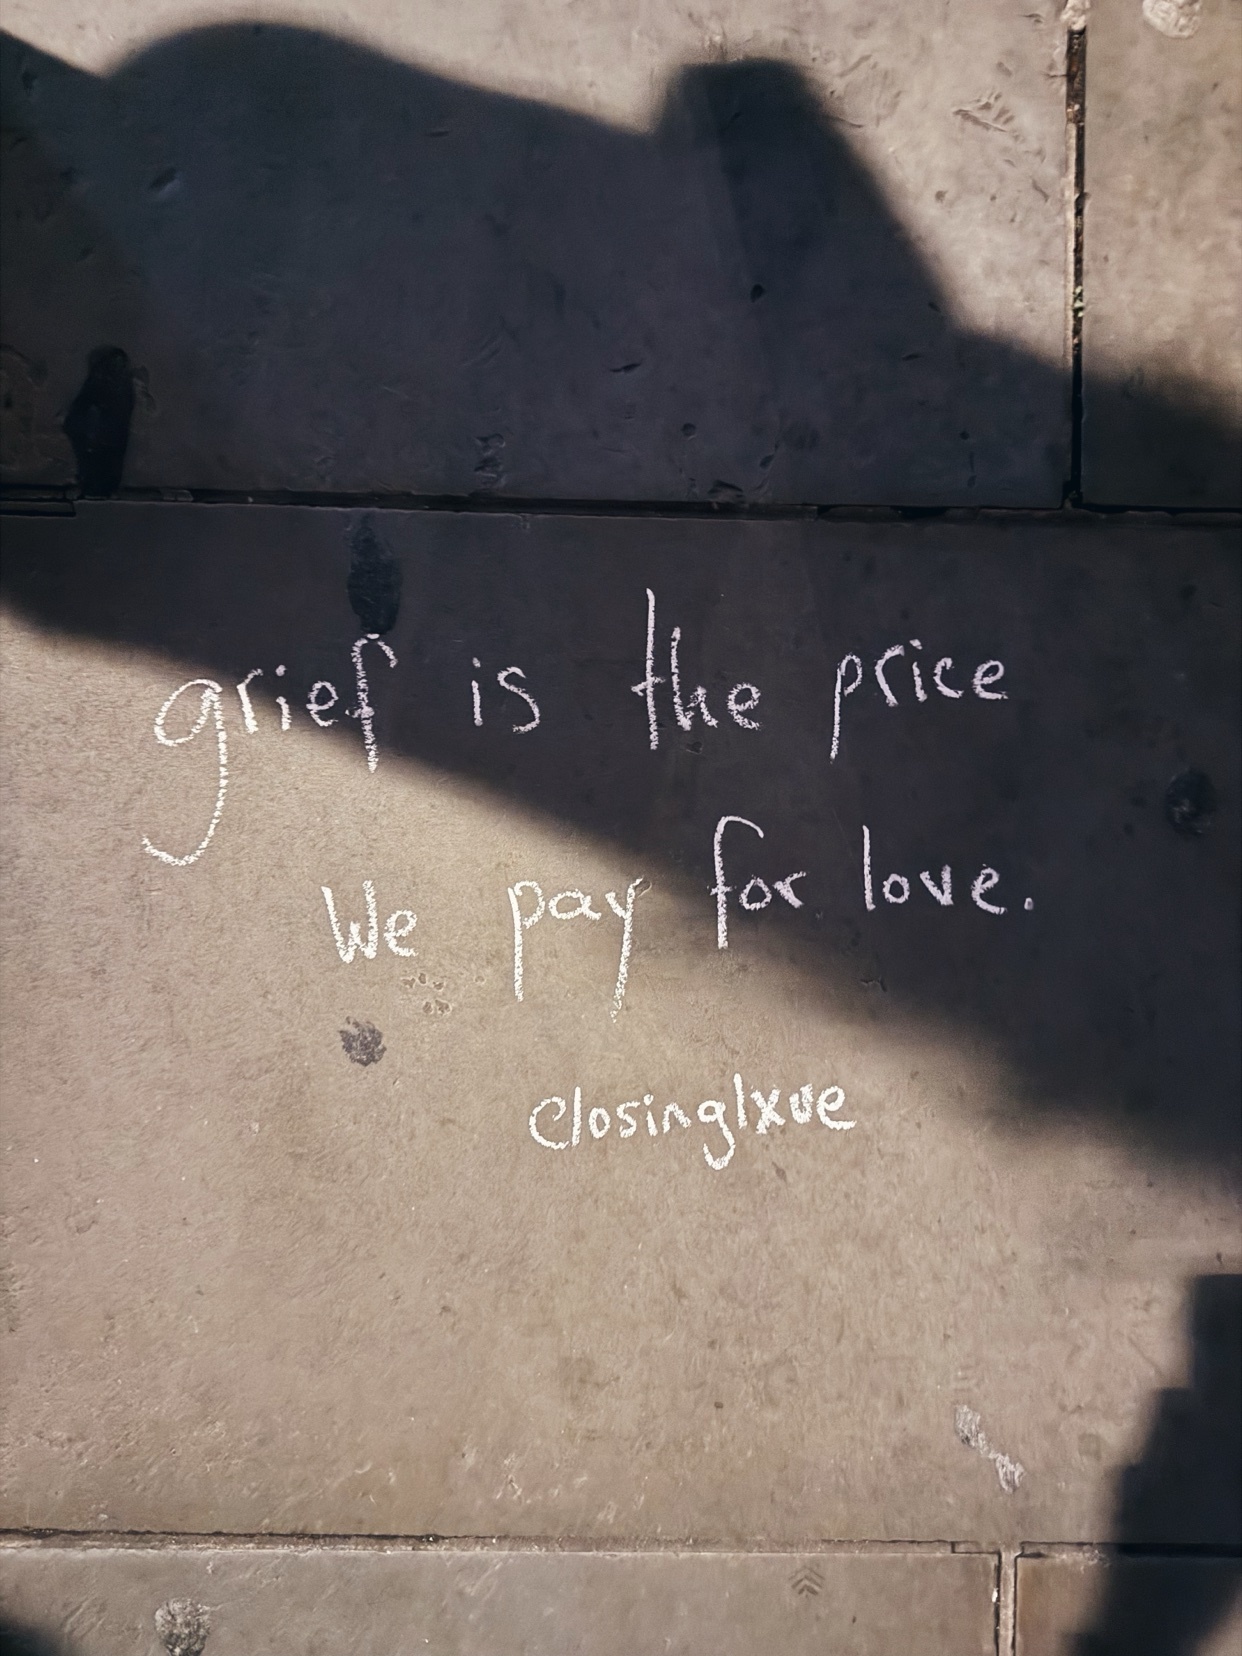 grief is the price
We pay for love.
closinglxve